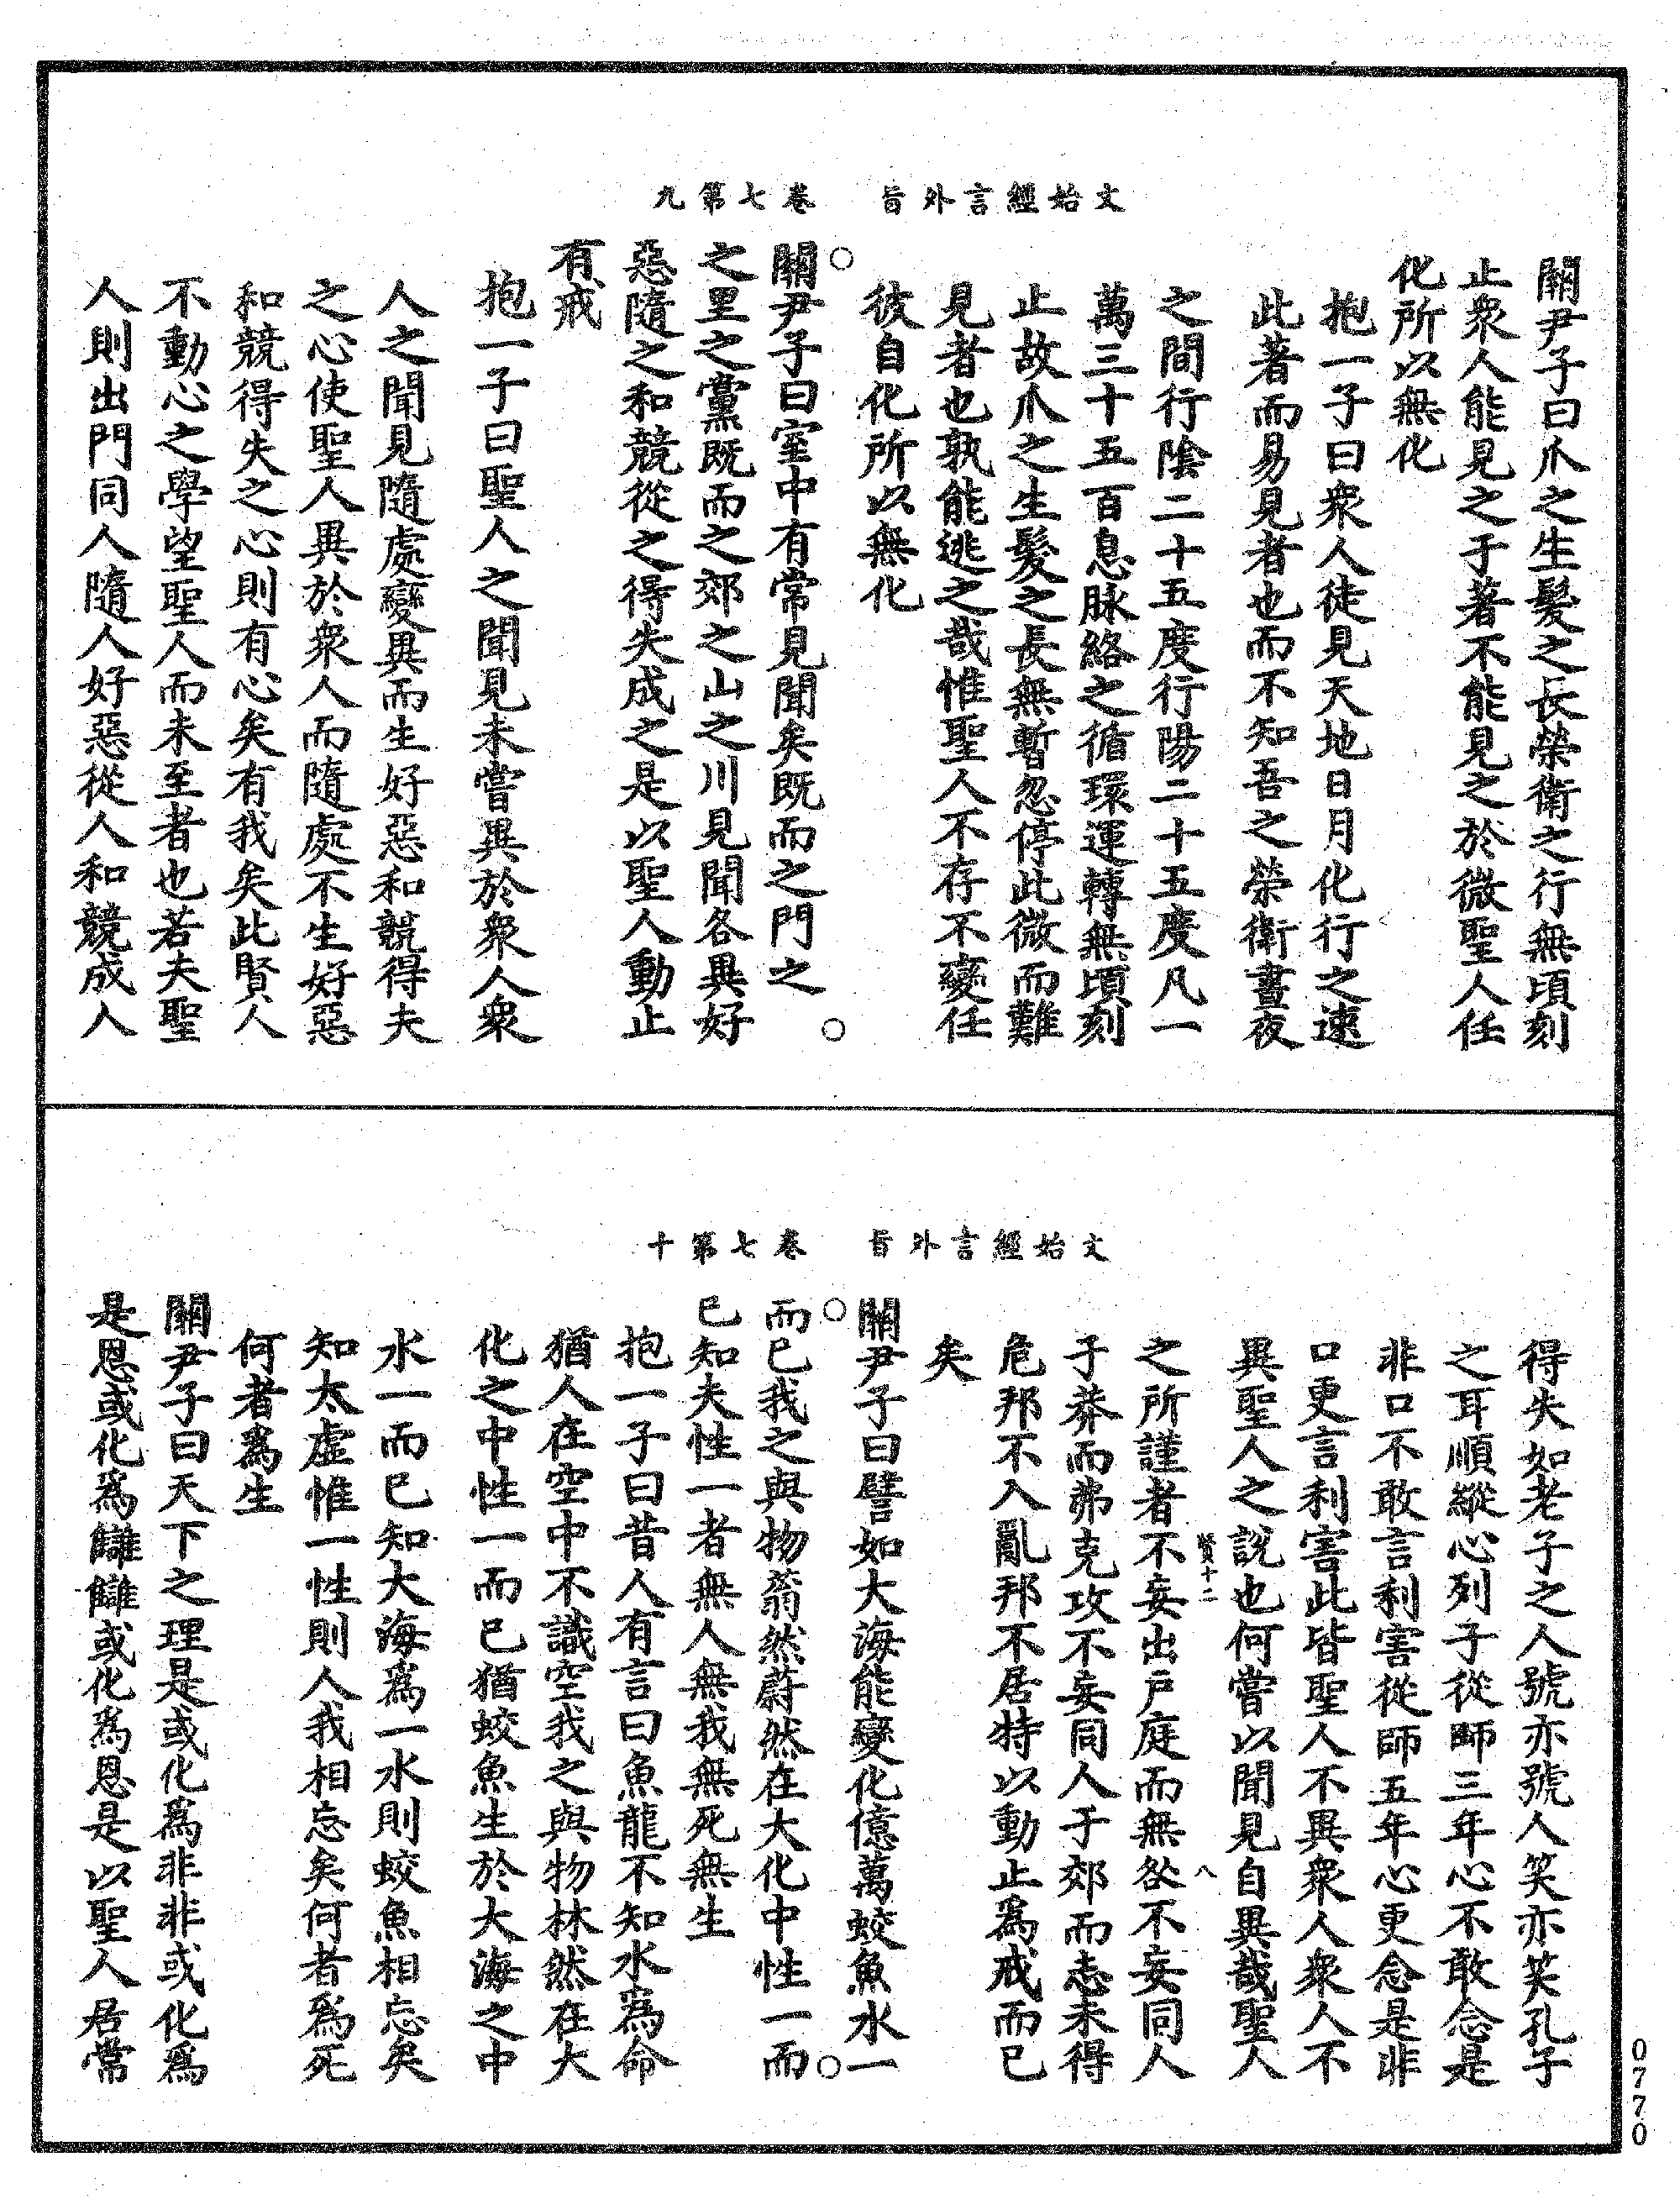 文始經言外旨　卷七第九
關尹子曰爪之生髮之長榮衛之行無頃刻
止衆人能見之于著不能見之於微聖人任
化所以無化
抱一子曰衆人徒見天地日月化行之速
此著而易見者也而不知吾之榮衛晝夜
之間行陰二十五度行陽二十五度凡一
萬三十五百息脉絡之循環運轉無頃刻
止故爪之生髮之長無暫忽停此微而難
見者也孰能逃之哉惟聖人不存不變任
彼自化所以無化
○關尹子曰室中有常見聞矣既而之門之○
之里之黨既而之郊之山之川見聞各異好
惡隨之和競從之得失成之是以聖人動止
有戒
抱一子曰聖人之聞見未嘗異於衆人衆
人之聞見隨處變異而生好惡和競得夫
之心使聖人異於衆人而隨處不生好惡
和競得失之心則有心矣有我矣此賢人
不動心之學望聖人而未至者也若夫聖
人則出門同人隨人好惡從人和競成人
文始經言外旨　卷七第十
得失如老子之人號亦號人笑亦笑孔子
之耳順縱心列子從師三年心不敢念是
非口不敢言利害從師五年心更念是非
口更言利害此皆聖人不異衆人衆人不
異聖人之說也何嘗以聞見自異哉聖人
賢十二　八
之所謹者不妄出戶庭而無咎不妄同人
于莽而弗克攻不妄同人于郊而志未得
危邦不入亂邦不居特以動止爲戒而已
矣
關尹子曰譬如大海能變化億萬蛟魚水一
○而已我之與物蓊然蔚然在大化中性一而○
已知夫性一者無人無我無死無生
抱一子曰昔人有言曰魚龍不知水爲命
猶人在空中不識空我之與物林然在大
化之中性一而已猶蛟魚生於大海之中
水一而已知大海爲一水則蛟魚相忘矣
知太虛惟一性則人我相忘矣何者爲死
何者爲生
關尹子曰天下之理是或化爲非非或化爲
是恩或化爲讎讎或化爲恩是以聖人居常
0770